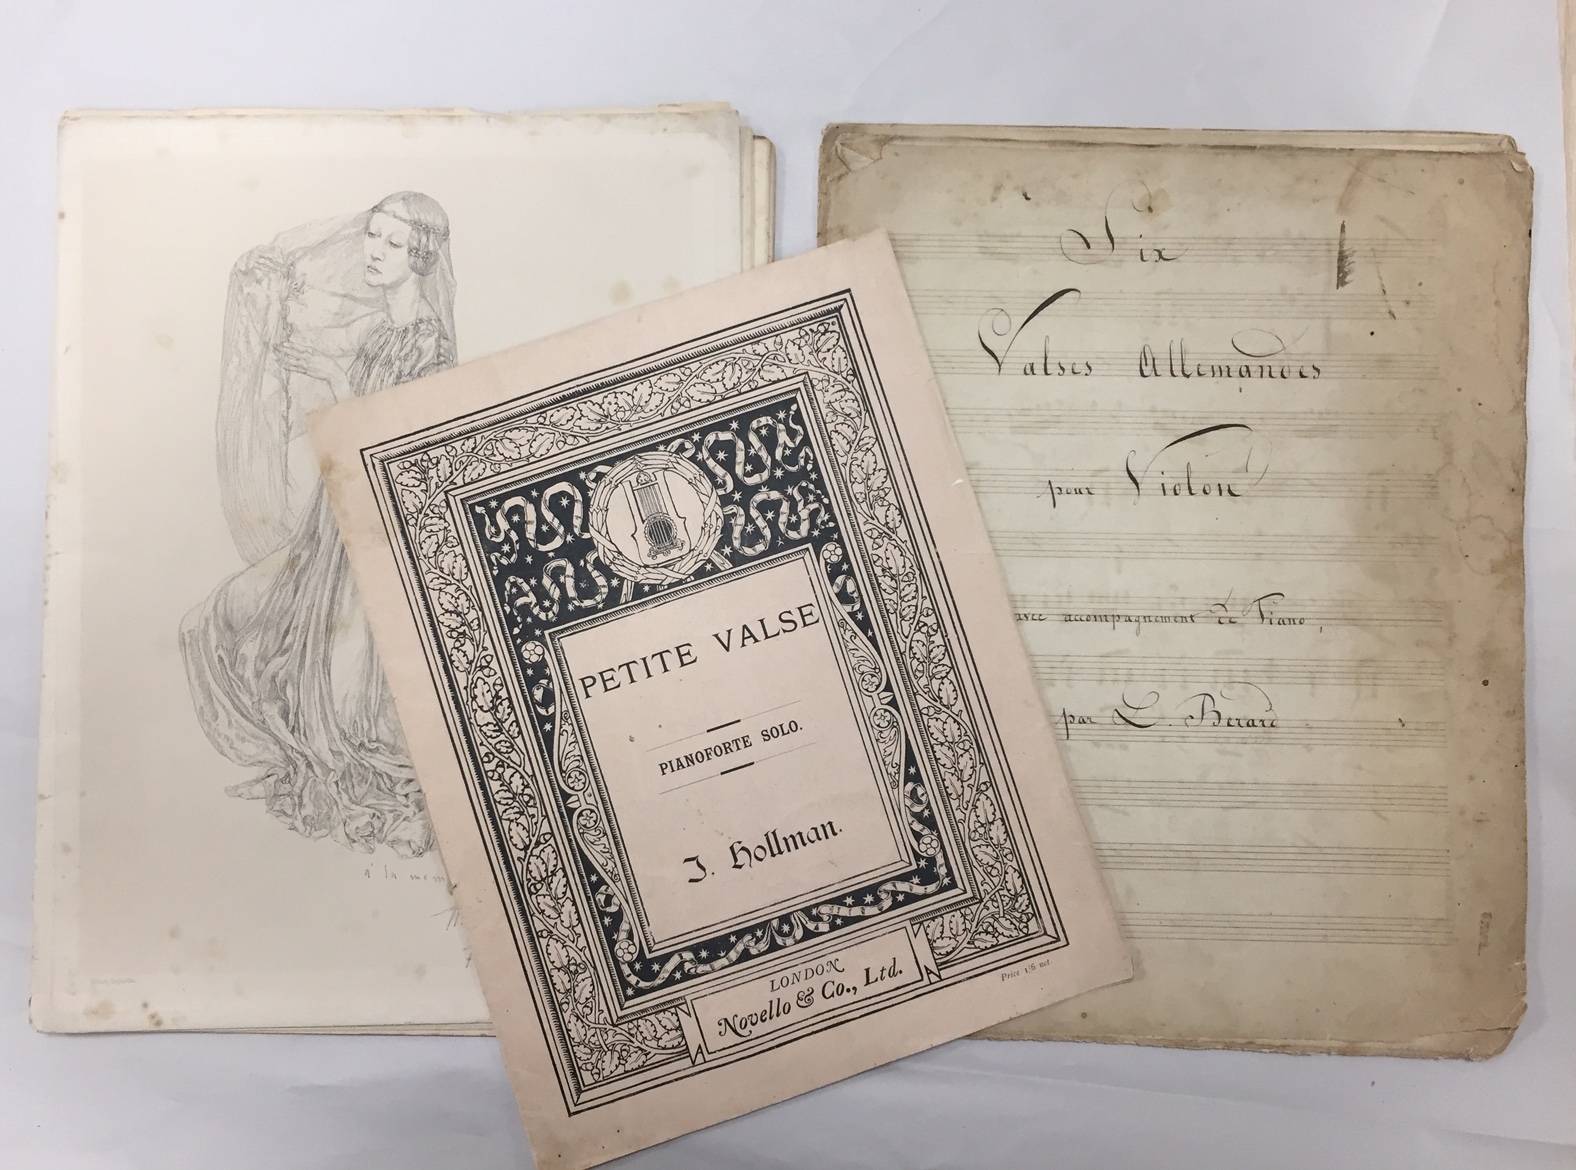 à la mem
PETITE VALSE
PIANOFORTE SOLO.
J. Hollman.
LONDON
Novello & Co., Ltd.
Price 1/6 net.
Six
Valses Allemandes
pour Violon
avec accompagnement de Piano,
par L. Berard